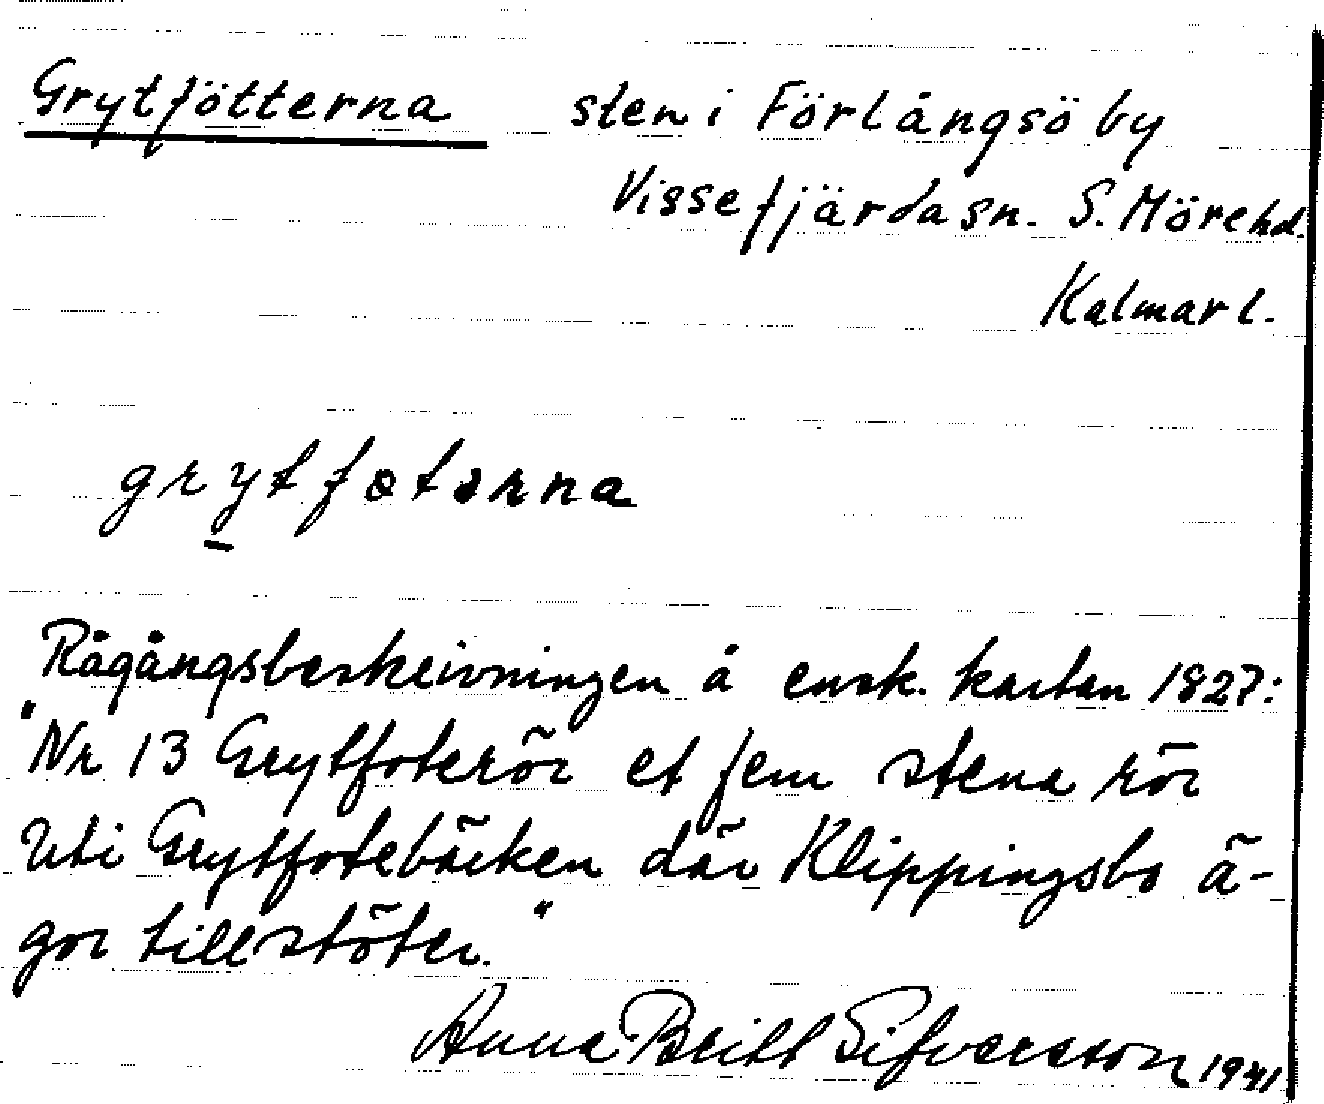 Grytfötterna sten i Förlångsö by
Vissefjärda sn. S. Möre hd.
Kalmar l.
grytføtərna
Rågångsbeskrivningen å ensk. kartan 1827:
"Nr 13 Grytfoterör et fem stena rör
Uti Grytfotebäcken där Klippingsbo ä-
gor tillstöter."
Anna-Britt Sifversson 1941